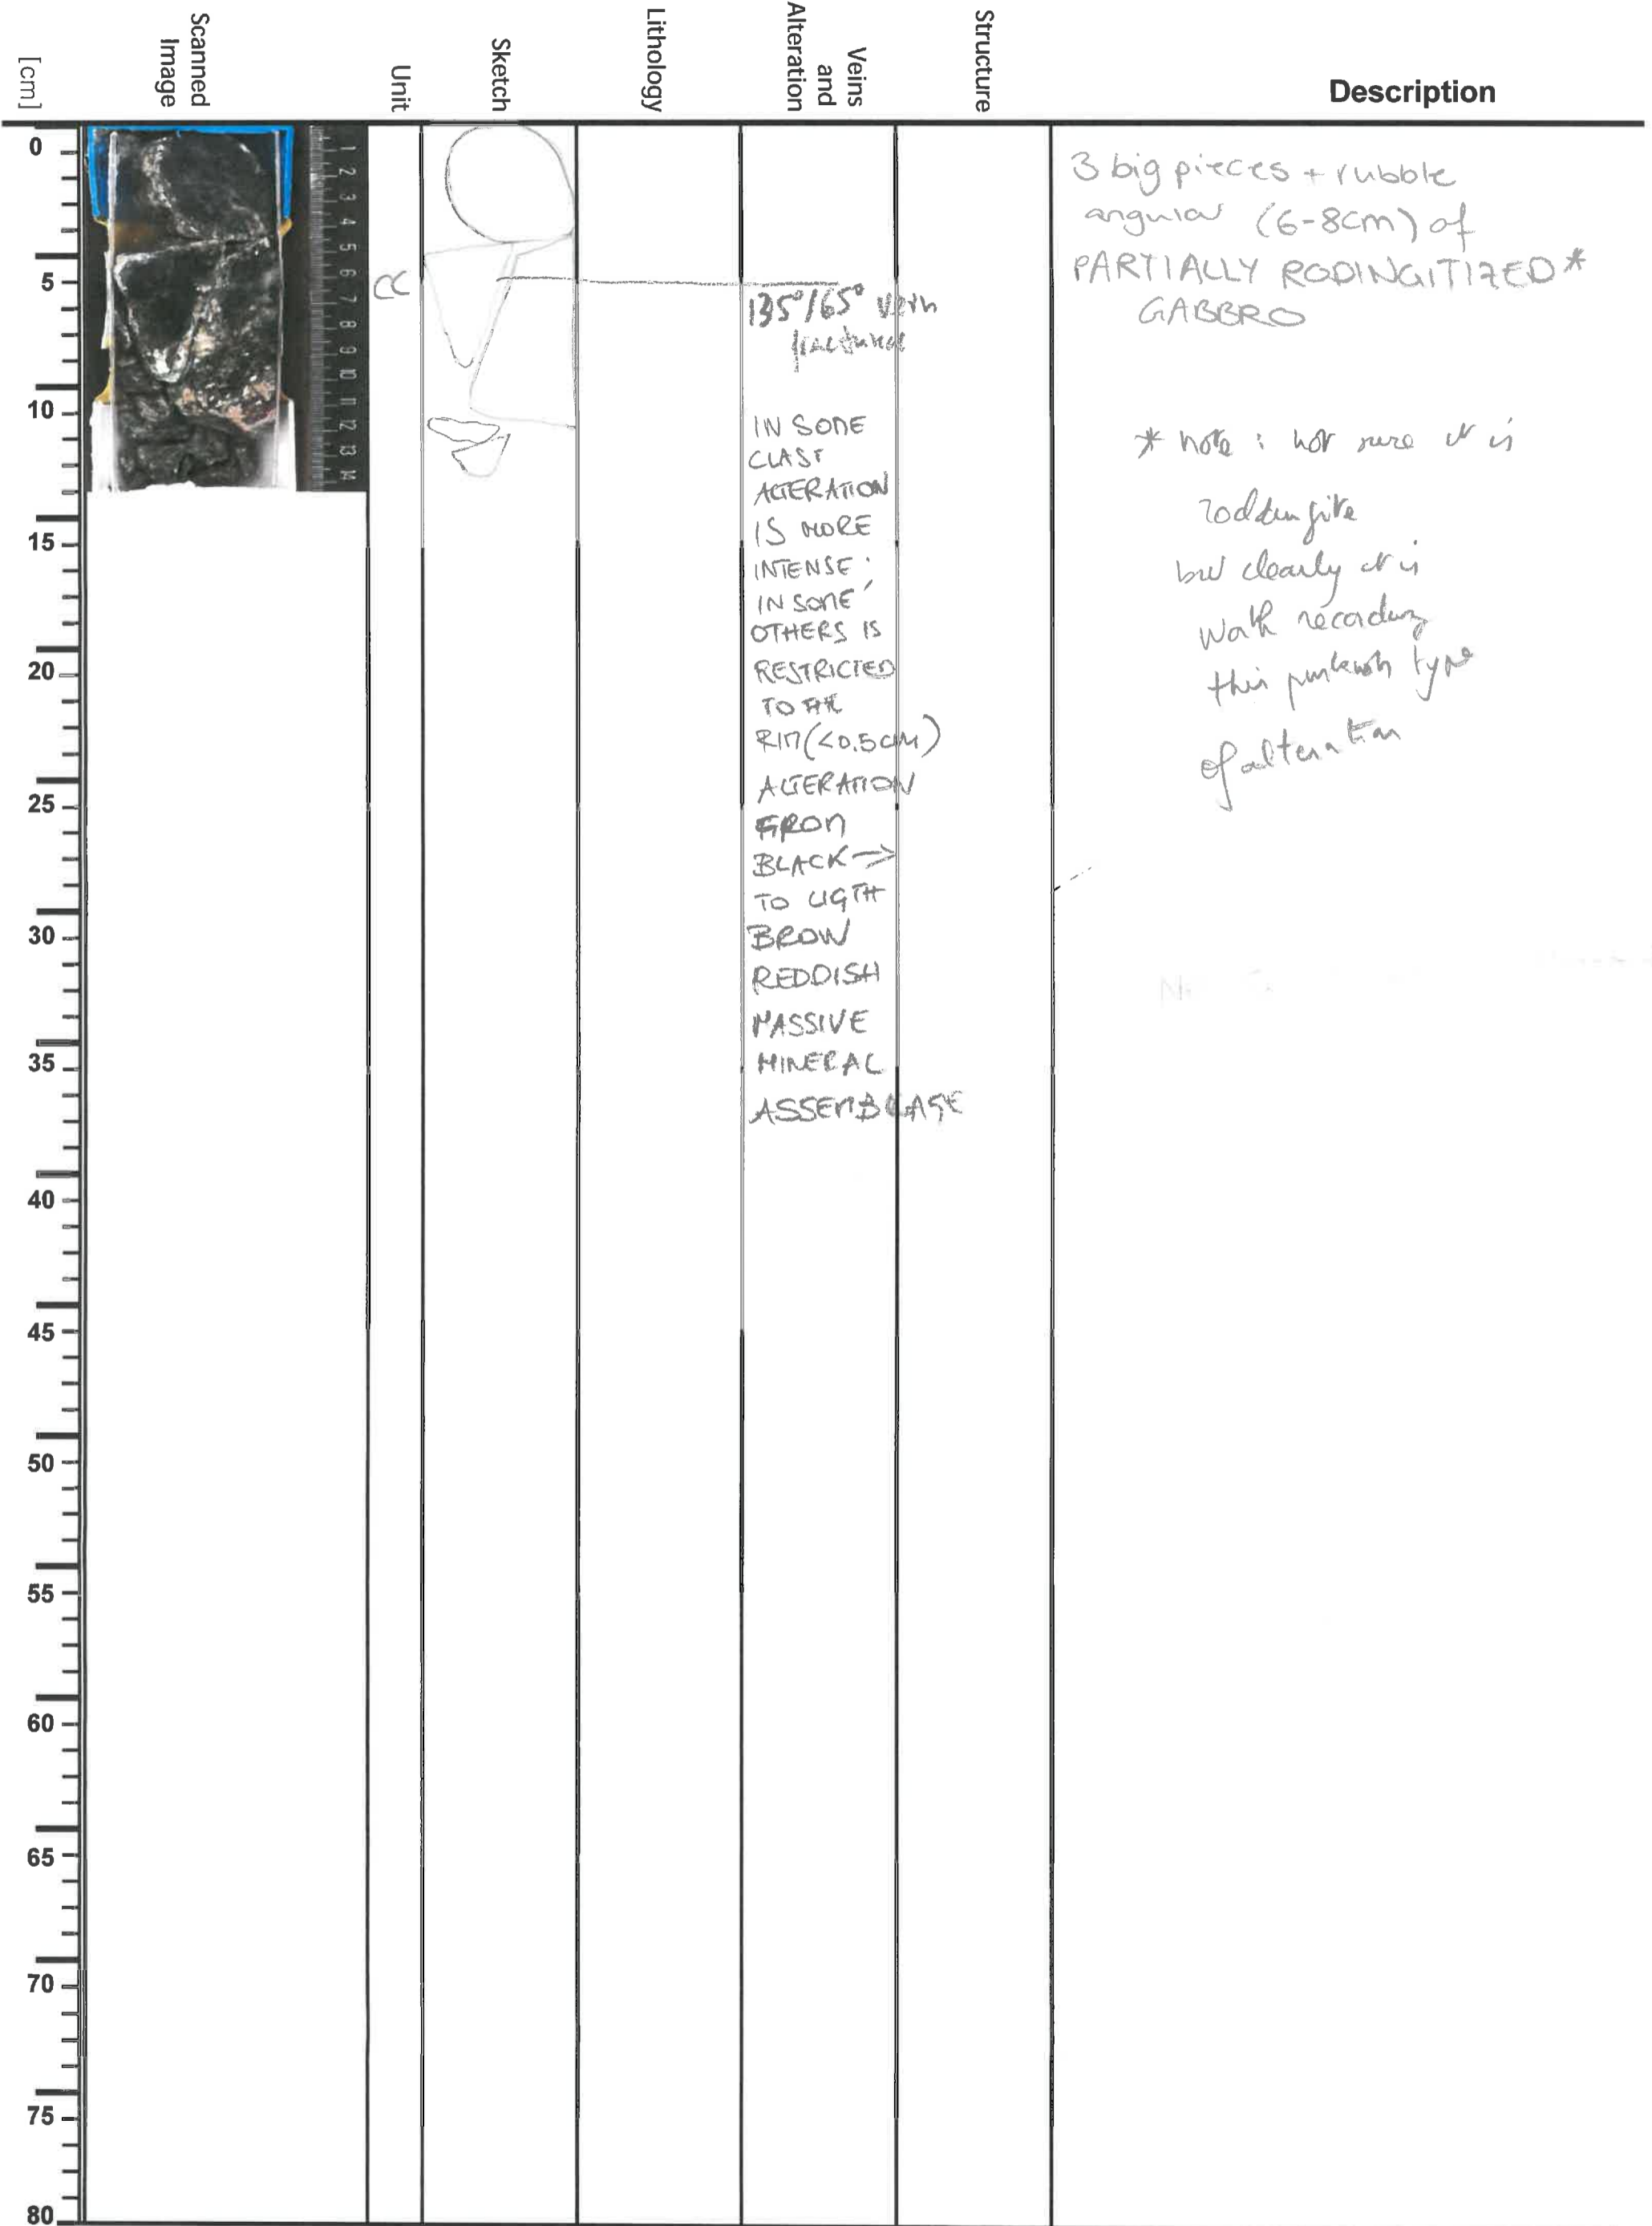 [cm]
Scanned
Image
Unit
Sketch
Lithology
Veins
and
Alteration
Structure
Description
0
5
10
15
20
25
30
35
40
45
50
55
60
65
70
75
80
1 2 3 4 5 6 7 8 9 10 11 12 13 14
135°/65° vein
fractured
IN SOME
CLAST
ALTERATION
IS MORE
INTENSE;
IN SOME
OTHERS IS
RESTRICTED
TO THE
RIM (<0.5 CM)
ALTERATION
FROM
BLACK →
TO LIGTH
BROW
REDDISH
MASSIVE
MINERAL
ASSEMBLAGE
3 big pieces + rubble
angular (6-8cm) of
PARTIALLY RODINGITIZED *
GABBRO
* note : not sure it is
roddingite
but clearly it is
worth recording
this pinkish type
of alteration